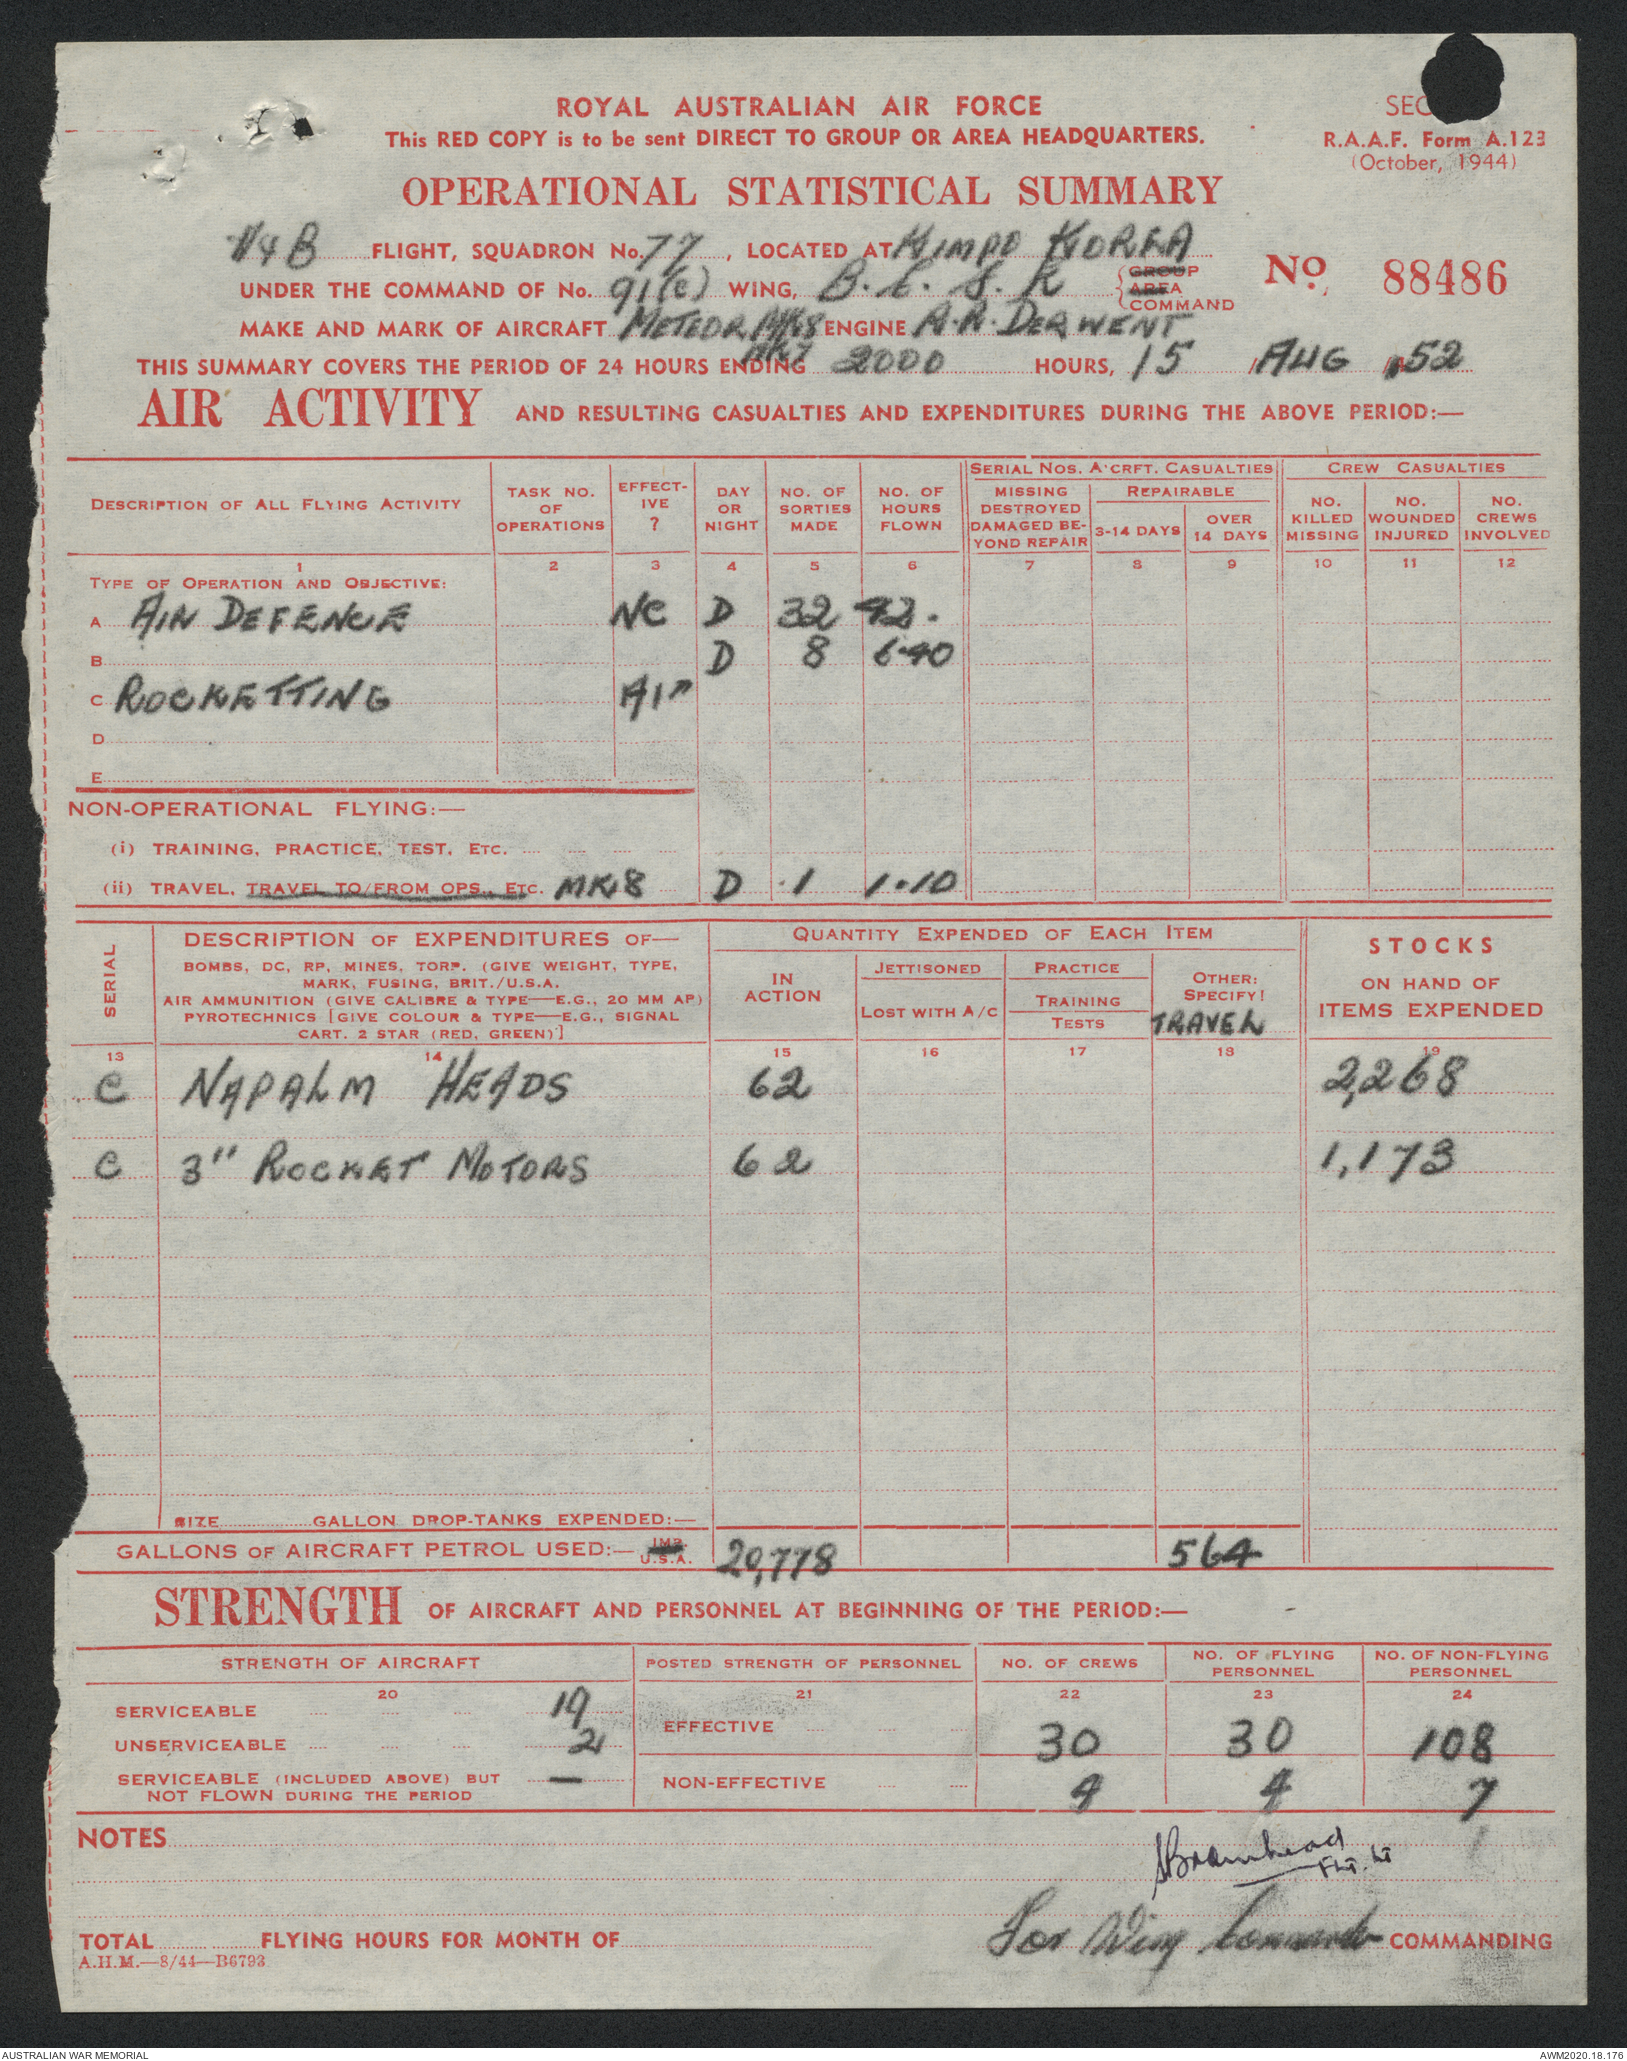 ROYAL AUSTRALIAN AIR FORCE
This RED COPY is to be sent DIRECT TO GROUP OR AREA HEADQUARTERS.
SEC
R.A.A.F. Form A.123
(October, 1944)
OPERATIONAL STATISTICAL SUMMARY
FLIGHT, SQUADRON No. 77, LOCATED AT KIMPO KOREA
UNDER THE COMMAND OF No. 91(C) WING, GROUP AREA COMMAND
No. 88486
MAKE AND MARK OF AIRCRAFT METEOR MK8 ENGINE DERWENT
MK7
THIS SUMMARY COVERS THE PERIOD OF 24 HOURS ENDING 2000 HOURS, 15 / AUG 52
AIR ACTIVITY AND RESULTING CASUALTIES AND EXPENDITURES DURING THE ABOVE PERIOD:—
DESCRIPTION OF ALL FLYING ACTIVITY
TASK NO. OF OPERATIONS
EFFECTIVE ?
DAY OR NIGHT
NO. OF SORTIES MADE
NO. OF HOURS FLOWN
SERIAL NOS. A'CRFT. CASUALTIES
MISSING DESTROYED DAMAGED BEYOND REPAIR
REPAIRABLE
3-14 DAYS
OVER 14 DAYS
CREW CASUALTIES
NO. KILLED MISSING
NO. WOUNDED INJURED
NO. CREWS INVOLVED
1 2 3 4 5 6 7 8 9 10 11 12
TYPE OF OPERATION AND OBJECTIVE:
A AIR DEFENCE NC D 32 42.
B D 8 6.40
C ROCKETTING
D
E
NON-OPERATIONAL FLYING:—
(i) TRAINING, PRACTICE, TEST, ETC.
(ii) TRAVEL, TRAVEL TO/FROM OPS., ETC. MK8 D 1 1.10
SERIAL
DESCRIPTION OF EXPENDITURES OF—
BOMBS, DC, RP, MINES, TORP. (GIVE WEIGHT, TYPE,
MARK, FUSING, BRIT./U.S.A.
AIR AMMUNITION (GIVE CALIBRE & TYPE—E.G., 20 MM AP)
PYROTECHNICS [GIVE COLOUR & TYPE—E.G., SIGNAL
CART. 2 STAR (RED, GREEN)]
QUANTITY EXPENDED OF EACH ITEM
IN ACTION
JETTISONED
LOST WITH A/C
PRACTICE
TRAINING
TESTS
OTHER:
SPECIFY!
TRAVEL
STOCKS
ON HAND OF
ITEMS EXPENDED
13 14 15 16 17 18 19
C NAPALM HEADS 62 2,268
C 3" ROCKET MOTORS 62 1,173
SIZE GALLON DROP-TANKS EXPENDED:—
GALLONS OF AIRCRAFT PETROL USED:— IMP. U.S.A. 20,778 564
STRENGTH OF AIRCRAFT AND PERSONNEL AT BEGINNING OF THE PERIOD:—
STRENGTH OF AIRCRAFT
POSTED STRENGTH OF PERSONNEL
NO. OF CREWS
NO. OF FLYING PERSONNEL
NO. OF NON-FLYING PERSONNEL
20 21 22 23 24
SERVICEABLE 19
UNSERVICEABLE 2
SERVICEABLE (INCLUDED ABOVE) BUT NOT FLOWN DURING THE PERIOD —
EFFECTIVE 30 30 108
NON-EFFECTIVE 4 4 7
NOTES
Flt. Lt
For Wing Commander COMMANDING
TOTAL FLYING HOURS FOR MONTH OF
A.H.M.—8/44—B6793
AUSTRALIAN WAR MEMORIAL
AWM2020.18.176